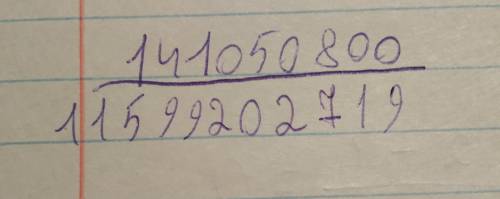 141050800
11599202719